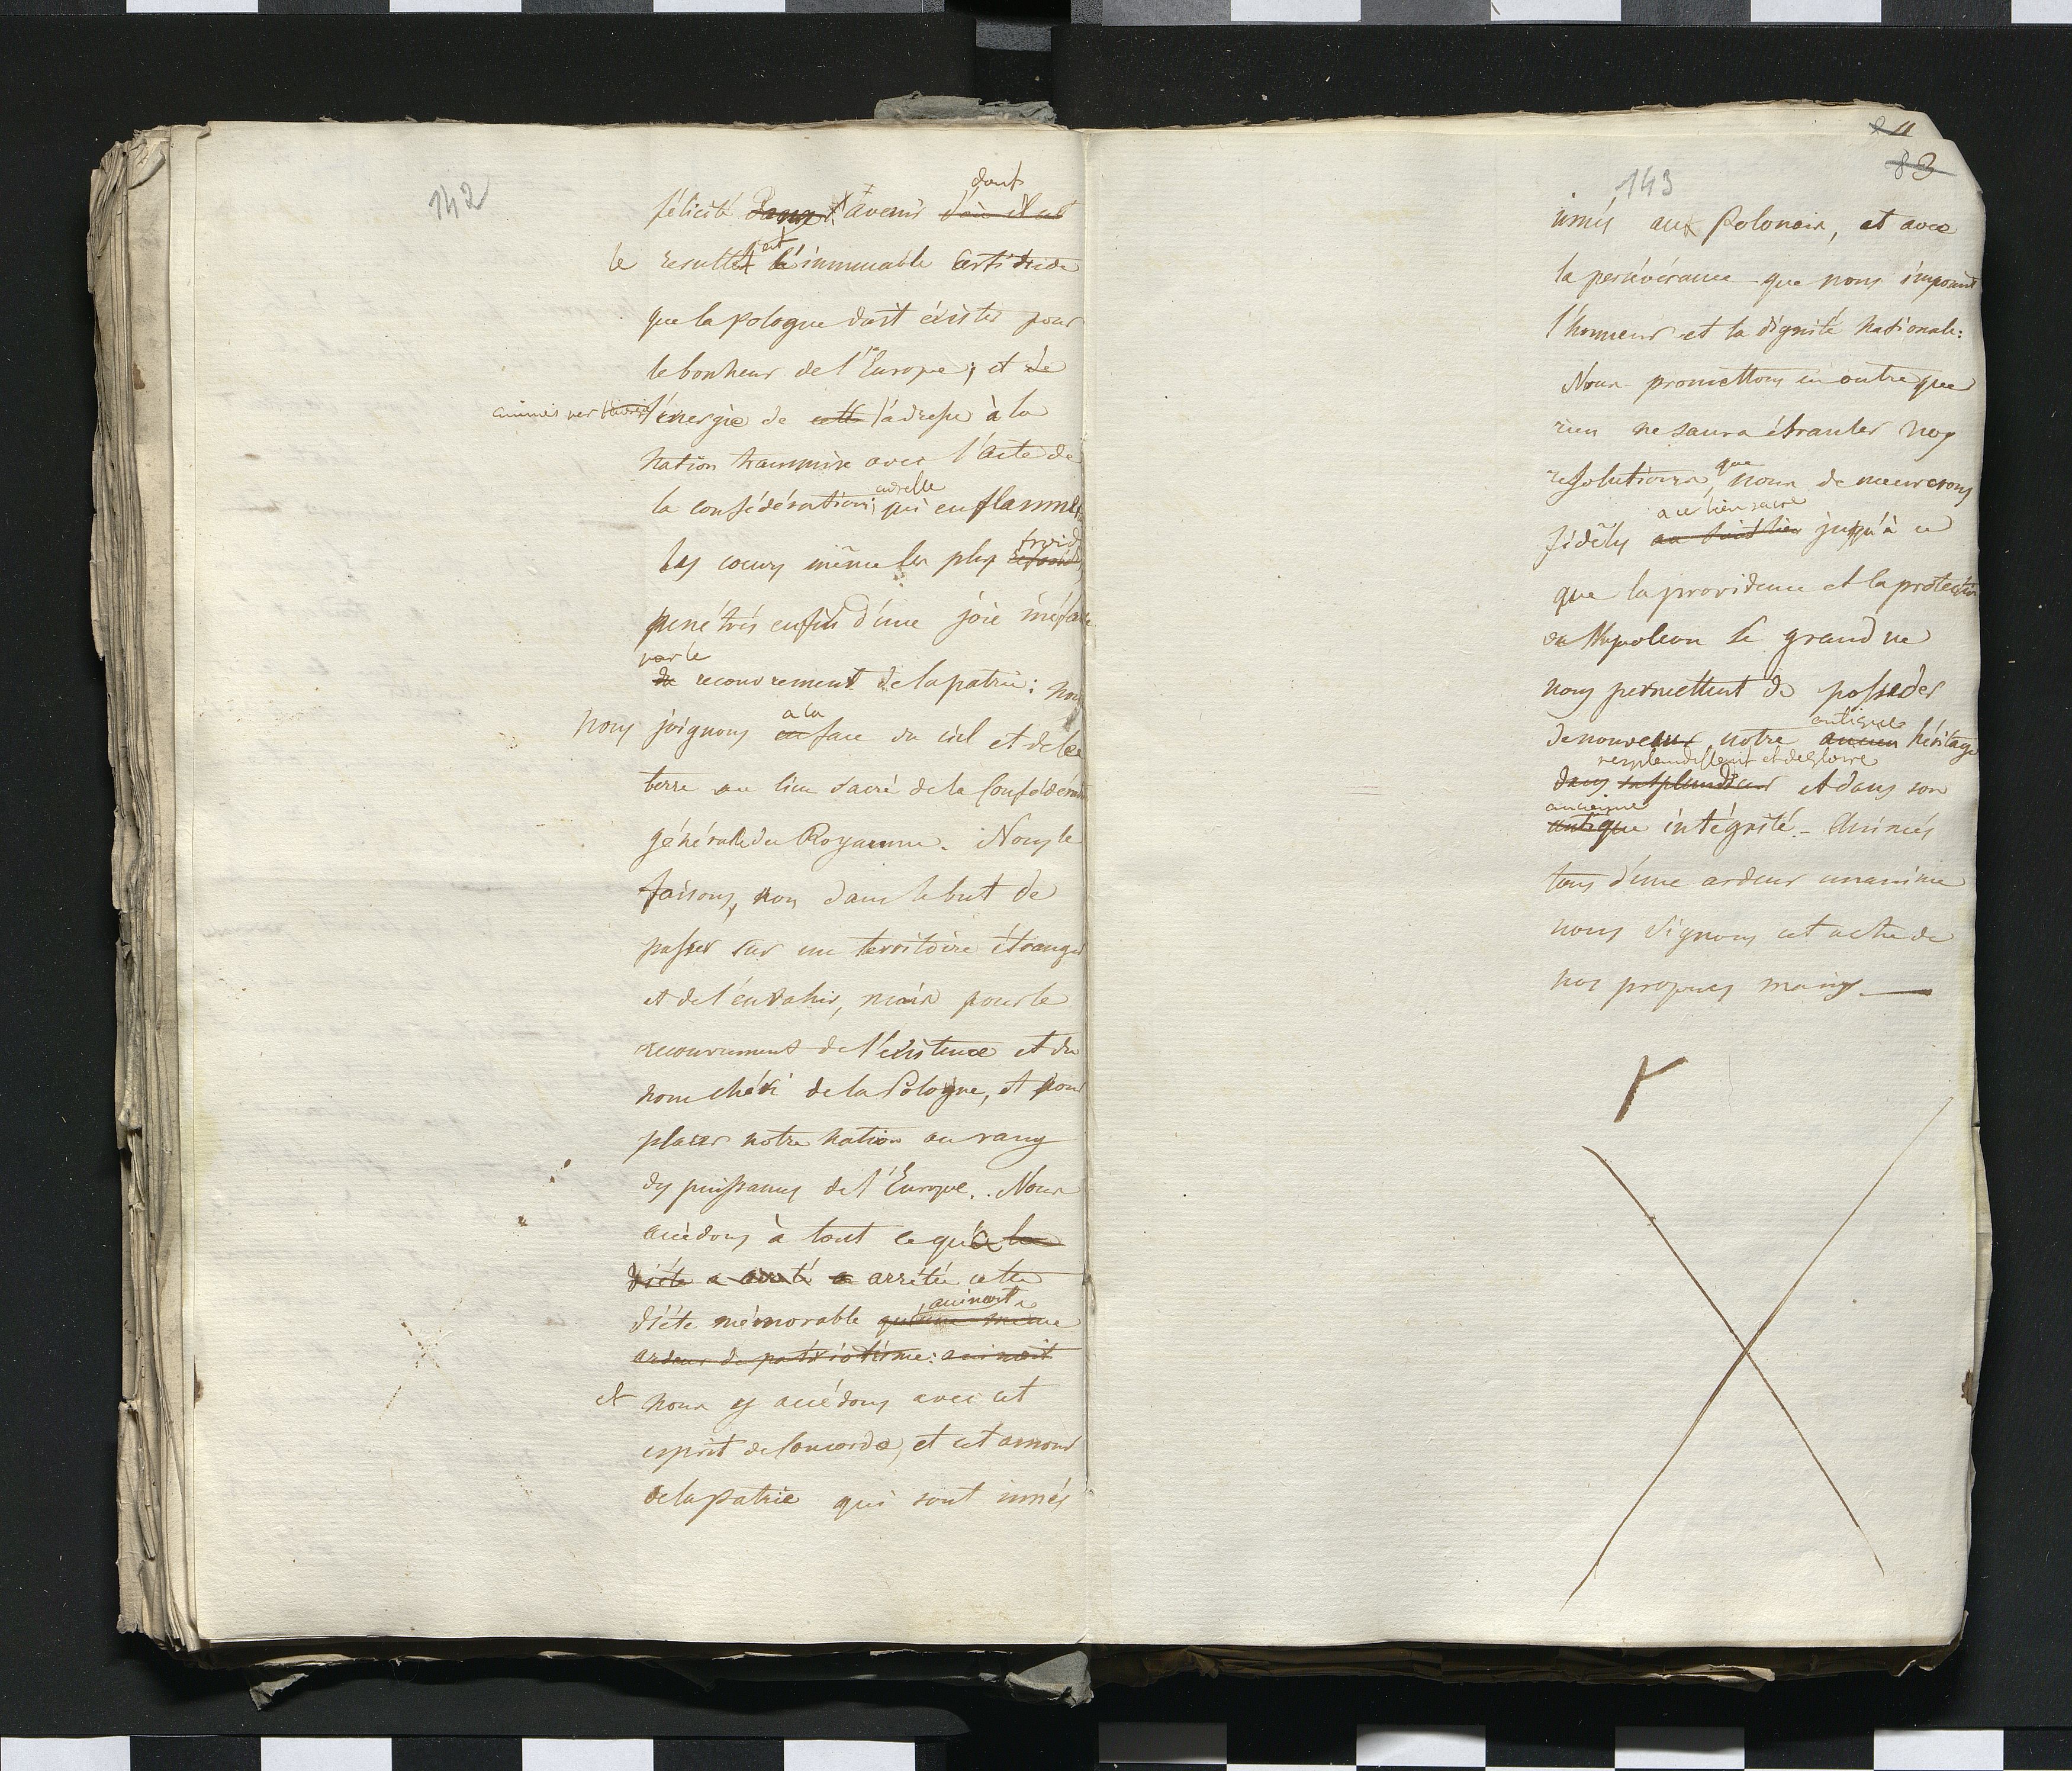 142
félicité dans l'avenir dont
le resultat est l'immuable certitude
que la pologne doit éxister pour
le bonheur de l'Europe; et de
animés par l'énergie de cette l'adresse à la
Nation transmise avec l'acte de
la confédération; adresse qui enflamme
les coeurs même les plus froids
penétrés enfin d'une joie inéfable
par le
du recouvrement de la patrie: nous
nous joignons à la face du ciel et de la
terre au lien sacré de la Confédération
générale du Royaume. Nous le
faisons, non dans le but de
passer sur un territoire étranger
et de l'envahir, mais pour le
recouvrement de l'existence et du
nom chéri de la Pologne, et pour
placer notre nation au rang
des puissances de l'Europe. Nous
accédons à tout ce qu'a la
diéte a arrêté a arrêtée cette
diéte mémorable qu'une même
animoit
ardeur de patriotisme: animoit
et nous y accédons avec cet
esprit de concorde, et cet amour
de la patrie qui sont innés
11
83
143
innés aux Polonois, et avec
la persévérance que nous imposent
l'honneur et la dignité Nationale:
Nous promettons en outre que
rien ne saura ébranler nos
resolutions, que nous demeurerons
à ce lien sacré
fidèles au saint lien jusqu'à ce
que la providence et la protection
de Napoleon le grand ne
nous permettent de posseder
de nouveau notre ancien antique héritage
resplendissant et de gloire
dans sa splendeur et dans son
ancienne
antique intégrité. - Animés
tous d'une ardeur unanime
nous signons cet acte de
nos propres mains.